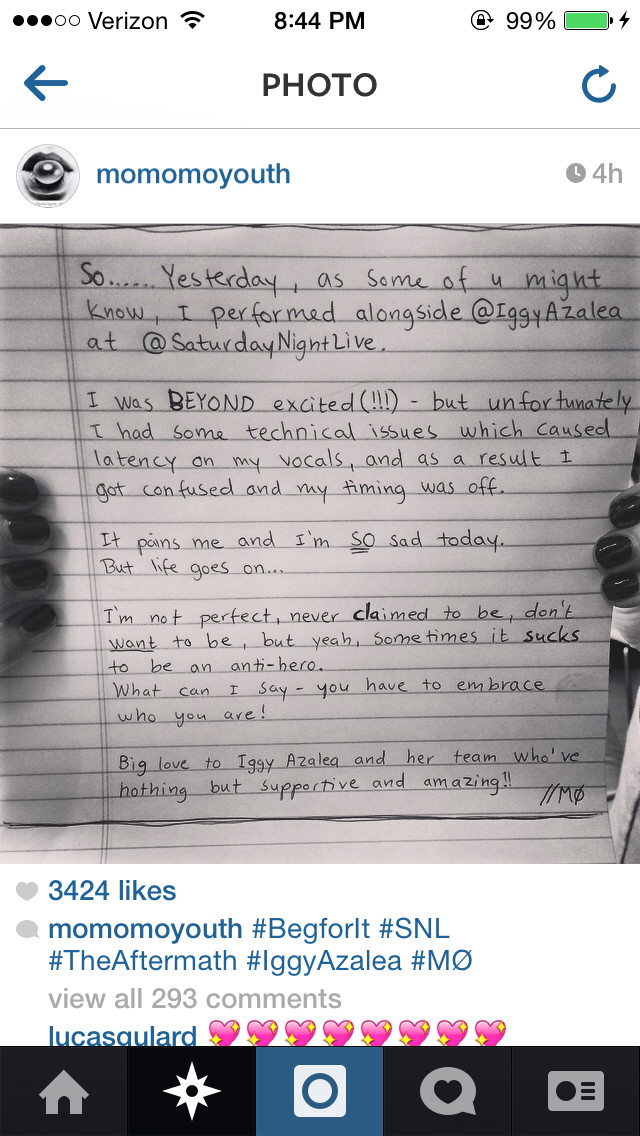 Verizon 8:44 PM 99%
PHOTO
momomoyouth 4h
So...... Yesterday, as some of u might
know, I performed alongside @IggyAzalea
at @SaturdayNightLive.
I was BEYOND excited (!!!) - but unfortunately
I had some technical issues which caused
latency on my vocals, and as a result I
got confused and my timing was off.
It pains me and I'm SO sad today.
But life goes on...
I'm not perfect, never claimed to be, don't
want to be, but yeah, sometimes it sucks
to be an anti-hero.
What can I say - you have to embrace
who you are!
Big love to Iggy Azalea and her team who've
nothing but supportive and amazing!!
//MØ
3424 likes
momomoyouth #BegforIt #SNL
#TheAftermath #IggyAzalea #MØ
view all 293 comments
lucasgulard 💖💖💖💖💖💖💖💖